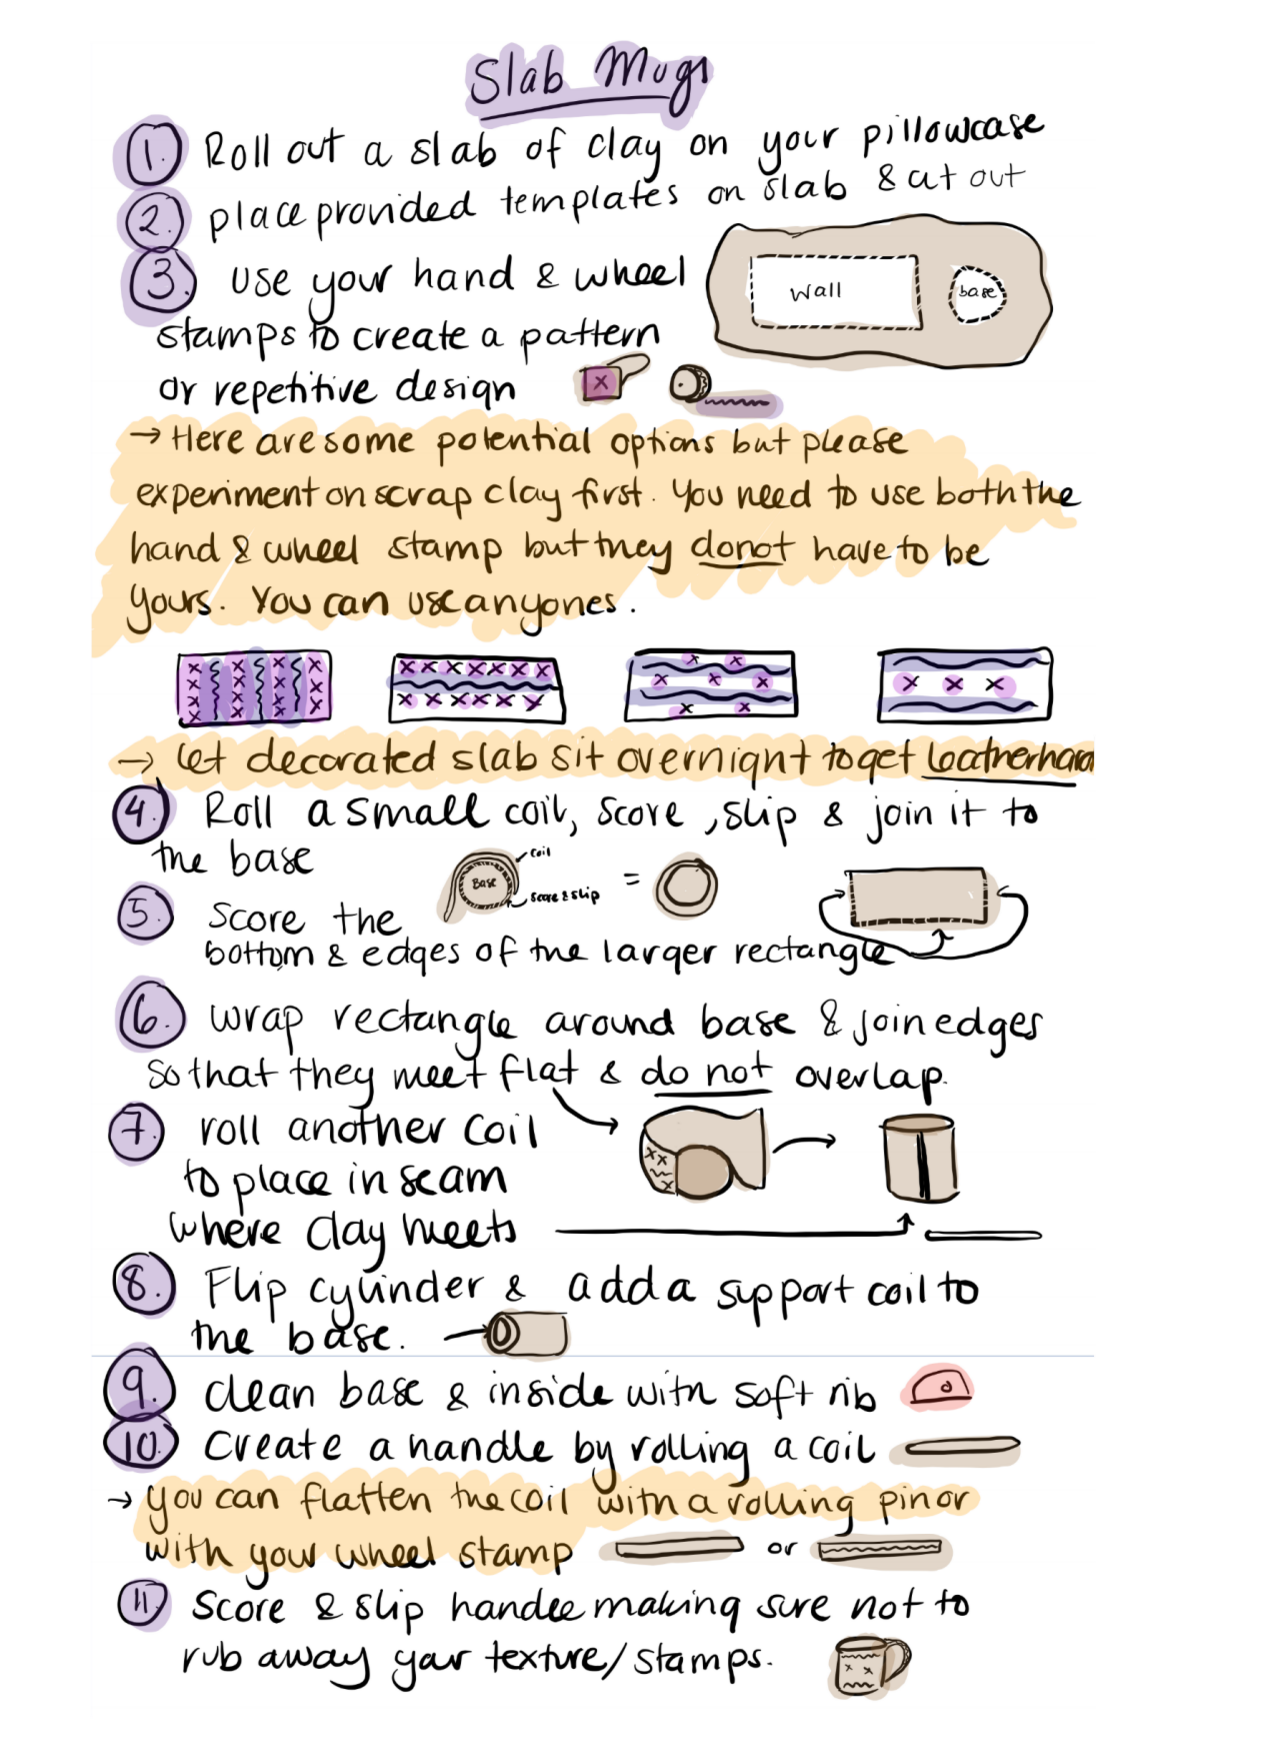 Slab Mugs
1. Roll out a slab of clay on your pillowcase
2. place provided templates on slab & cut out
3. use your hand & wheel
stamps to create a pattern
or repetitive design
wall
base
x
→ Here are some potential options but please
experiment on scrap clay first. You need to use both the
hand & wheel stamp but they do not have to be
yours. You can use anyones.
→ Let decorated slab sit overnight to get leatherhard
4. Roll a small coil, score, slip & join it to
the base
coil
Base
score & slip
=
5. Score the
bottom & edges of the larger rectangle
6. wrap rectangle around base & join edges
so that they meet flat & do not overlap.
7. roll another coil
to place in seam
where clay meets
8. Flip cylinder & add a support coil to
the base.
9. clean base & inside with soft rib
10. Create a handle by rolling a coil
→ you can flatten the coil with a rolling pin or
with your wheel stamp
or
11. Score & slip handle making sure not to
rub away your texture/stamps.